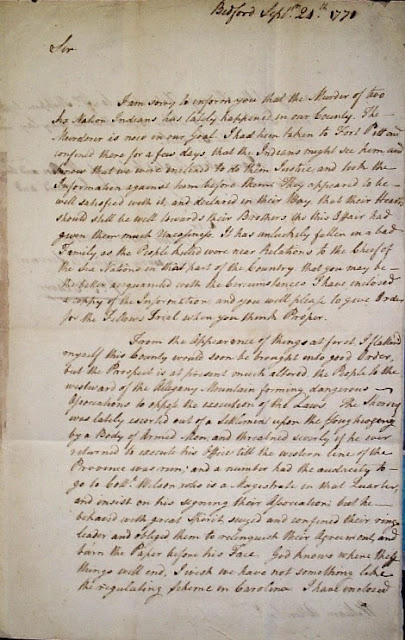 Bedford Septr. 21st. 1771
Sir
I am sorry to inform you that the Murder of two
Six Nation Indians has lately happened in our County. The
Murderer is now in our Goal. I had him taken to Fort Pitt and
confined there for a few days that the Indians might see him and
know that we were inclined to do them Justice, and took the
Information against him before them. They appeared to be
well satisfied with it, and declared in their Way, that their Hearts
should still be well towards their Brothers tho this Affair had
given them much Uneasiness. It has unluckely fallen in a bad
Family as the People killed were near Relations to the Chief of
the Six Nations in that part of the Country. that you may be
the better acquainted with the Circumstances I have inclosed
a copy of the Information, and you will please to give Orders
for the Fellows Trial when you think Proper.
From the Appearance of things at first, I flatterd
myself this County would soon be brought into good Order,
but the Prospect is at present much altered, the People to the
westward of the Allegany Mountain forming dangerous
Associations to oppose the execution of the Laws. The Sherriff
was lately escorted out of a Settlement upon the Youghiogeny
by a Body of Armed Men, and threatned severely if he ever
returned to execute his Office till the western line of the
Province was run; and a number had the audicity to
go to Coll. Wilson who is a Magistrate in that Quarter,
and insist on his signing their Association; but he
behaved with great Spirit, seized and confined their ring
leader and obliged them to relinquish their Agreement, and
burn the Paper before his Face. God knows where these
things will end, I wish we have not something like
the regulating Scheme in Carolina. I have inclosed